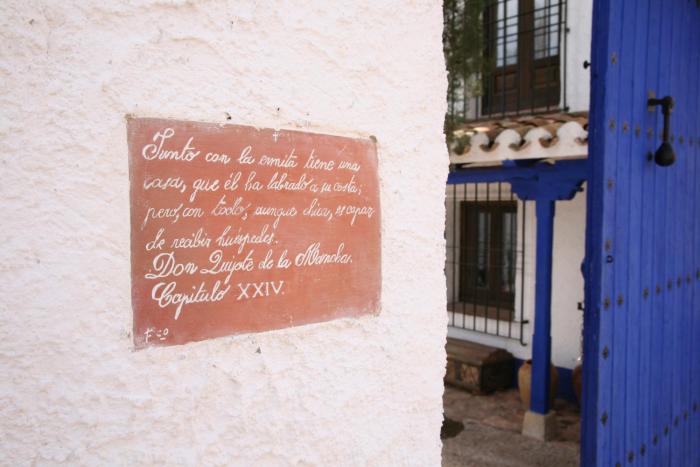 Junto con la ermita tiene una
casa, que él ha labrado a su costa;
pero, con todo, aunque chica, es capaz
de recibir huéspedes.
Don Quijote de la Mancha.
Capituló XXIV.